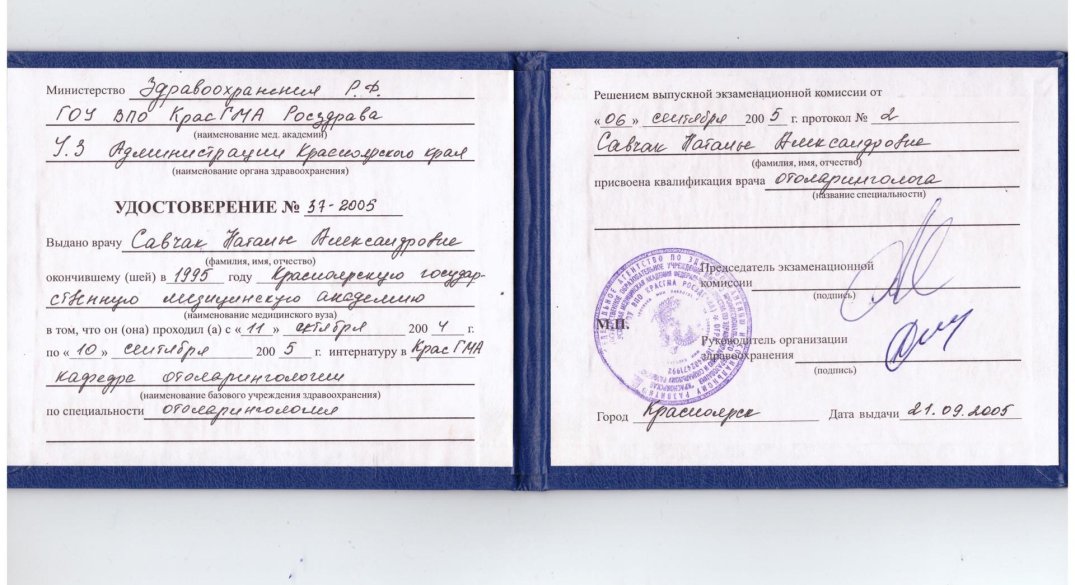 Министерство Здравоохранения Р.Ф.
ГОУ ВПО КрасГМА Росздрава
(наименование мед. академии)
У.З Администрации Красноярского края
(наименование органа здравоохранения)
УДОСТОВЕРЕНИЕ № 37-2005
Выдано врачу Савчак Наталье Александровне
(фамилия, имя, отчество)
окончившему (шей) в 1995 году Красноярскую государ-
ственную медицинскую академию
(наименование медицинского вуза)
в том, что он (она) проходил (а) с «11» октября 2004 г.
по «10» сентября 2005 г. интернатуру в КрасГМА
кафедре отоларингологии
(наименование базового учреждения здравоохранения)
по специальности отоларингология
Решением выпускной экзаменационной комиссии от
«06» сентября 2005 г. протокол № 2
Савчак Наталье Александровне
(фамилия, имя, отчество)
присвоена квалификация врача отоларинголога
(название специальности)
Председатель экзаменационной
комиссии
(подпись)
М.П.
Руководитель организации
здравоохранения
(подпись)
Город Красноярск Дата выдачи 21.09.2005